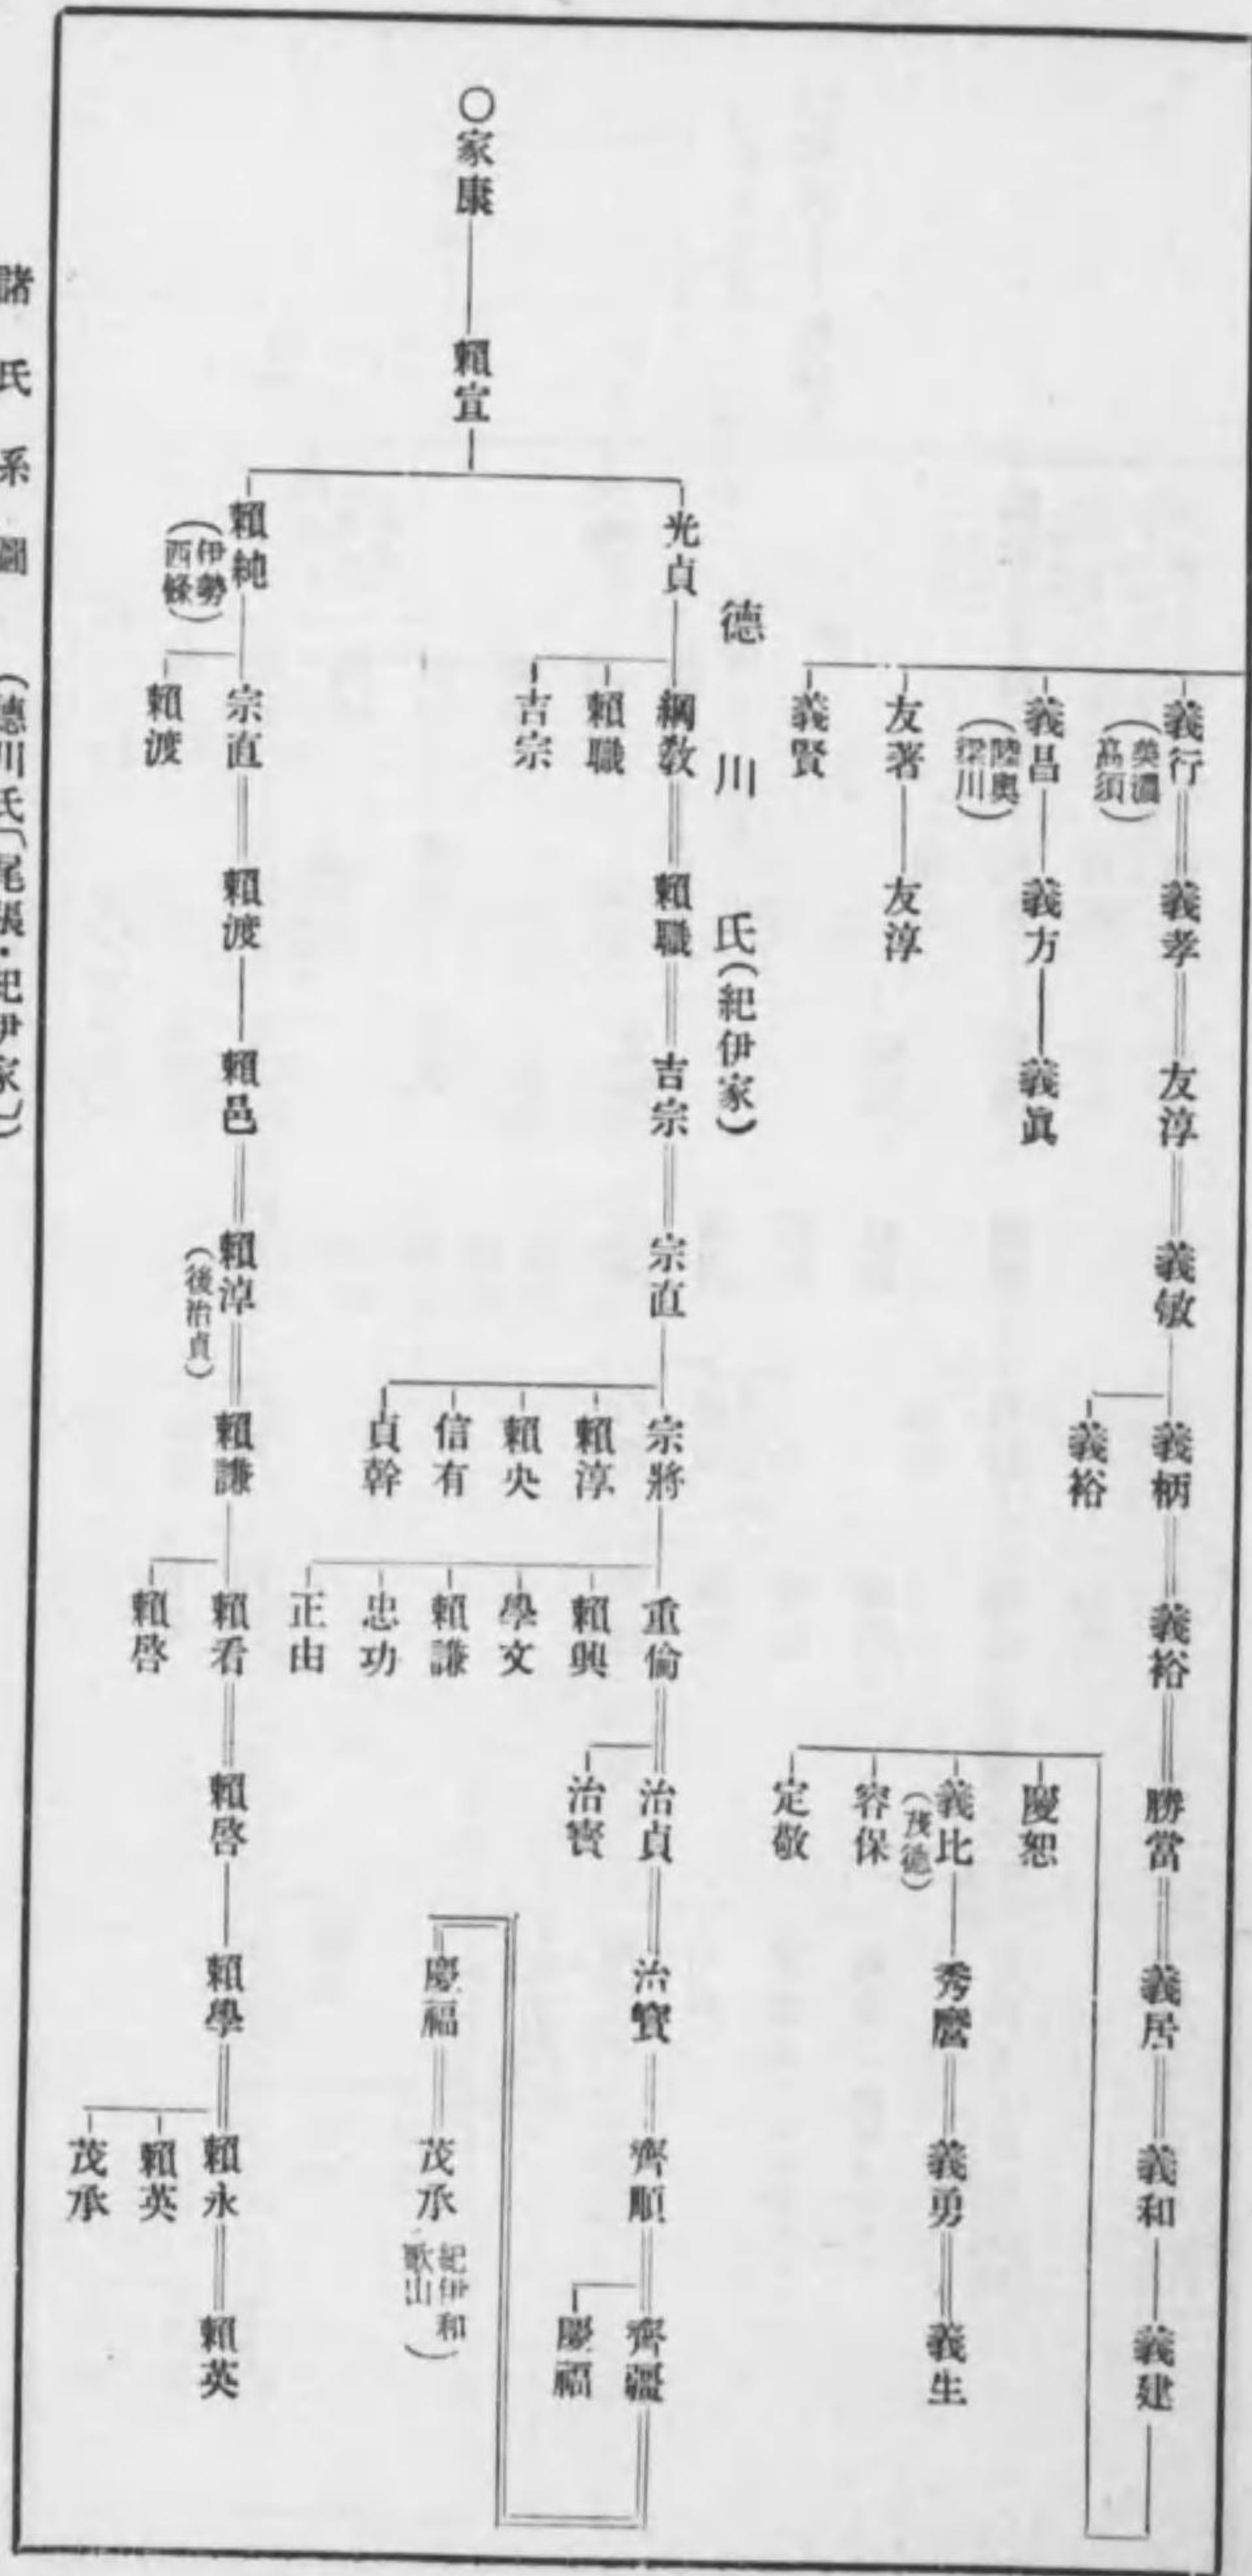 義行
(美濃
高須)
義孝
友淳
義敏
義柄
義裕
勝當
義居
義和
義建
義裕
義昌
(陸奥
梁川)
義方
義眞
友著
友淳
義賢
慶恕
義比
(茂德)
秀麿
義勇
義生
容保
定敬
德川氏(紀伊家)
〇家康
賴宣
光貞
綱敎
賴職
吉宗
宗直
宗將
重倫
治貞
治寶
齊順
齊疆
賴職
吉宗
賴淳
賴央
信有
貞幹
賴興
學文
賴謙
忠功
正由
治寶
慶福
慶福
茂承
紀伊和
歌山)
賴純
(伊勢
西條)
宗直
賴渡
賴邑
賴淳
(後治貞)
賴謙
賴看
賴啓
賴學
賴永
賴英
賴渡
賴啓
賴英
茂承
諸氏系圖 (德川氏〔尾張・紀伊家〕)